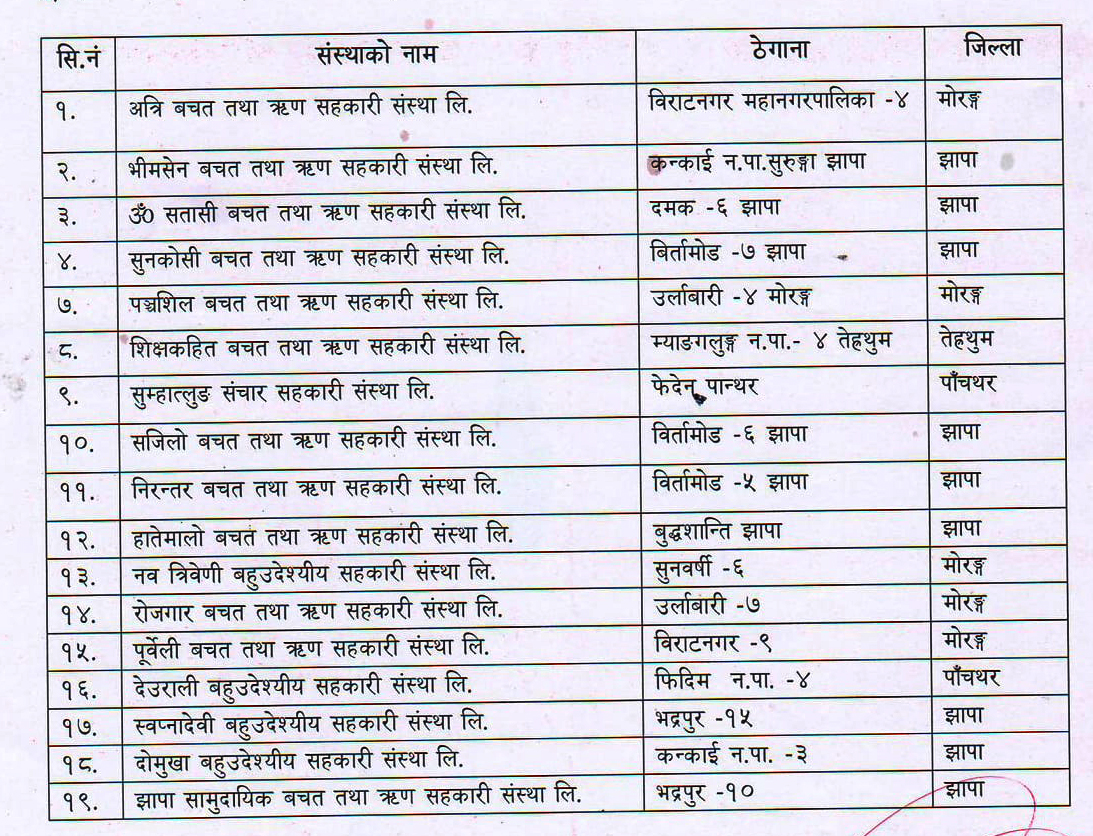 सि.नं संस्थाको नाम ठेगाना जिल्ला
१. अत्रि बचत तथा ऋण सहकारी संस्था लि. विराटनगर महानगरपालिका -४ मोरङ्ग
२. भीमसेन बचत तथा ऋण सहकारी संस्था लि. कन्काई न.पा.सुरुङ्गा झापा झापा
३. ॐ सतासी बचत तथा ऋण सहकारी संस्था लि. दमक -६ झापा झापा
४. सुनकोसी बचत तथा ऋण सहकारी संस्था लि. बिर्तामोड -७ झापा झापा
७. पञ्चशिल बचत तथा ऋण सहकारी संस्था लि. उर्लाबारी -४ मोरङ्ग मोरङ्ग
८. शिक्षकहित बचत तथा ऋण सहकारी संस्था लि. म्याङगलुङ्ग न.पा.- ४ तेह्रथुम तेह्रथुम
९. सुम्हात्लुङ संचार सहकारी संस्था लि. फेदेन पान्थर पाँचथर
१०. सजिलो बचत तथा ऋण सहकारी संस्था लि. विर्तामोड -६ झापा झापा
११. निरन्तर बचत तथा ऋण सहकारी संस्था लि. विर्तामोड -५ झापा झापा
१२. हातेमालो बचत तथा ऋण सहकारी संस्था लि. बुद्धशान्ति झापा झापा
१३. नव त्रिवेणी बहुउदेश्यीय सहकारी संस्था लि. सुनवर्षी -६ मोरङ्ग
१४. रोजगार बचत तथा ऋण सहकारी संस्था लि. उर्लाबारी -७ मोरङ्ग
१५. पूर्वेली बचत तथा ऋण सहकारी संस्था लि. विराटनगर -९ मोरङ्ग
१६. देउराली बहुउदेश्यीय सहकारी संस्था लि. फिदिम न.पा. -४ पाँचथर
१७. स्वप्नादेवी बहुउदेश्यीय सहकारी संस्था लि. भद्रपुर -१५ झापा
१८. दोमुखा बहुउदेश्यीय सहकारी संस्था लि. कन्काई न.पा. -३ झापा
१९. झापा सामुदायिक बचत तथा ऋण सहकारी संस्था लि. भद्रपुर -१० झापा